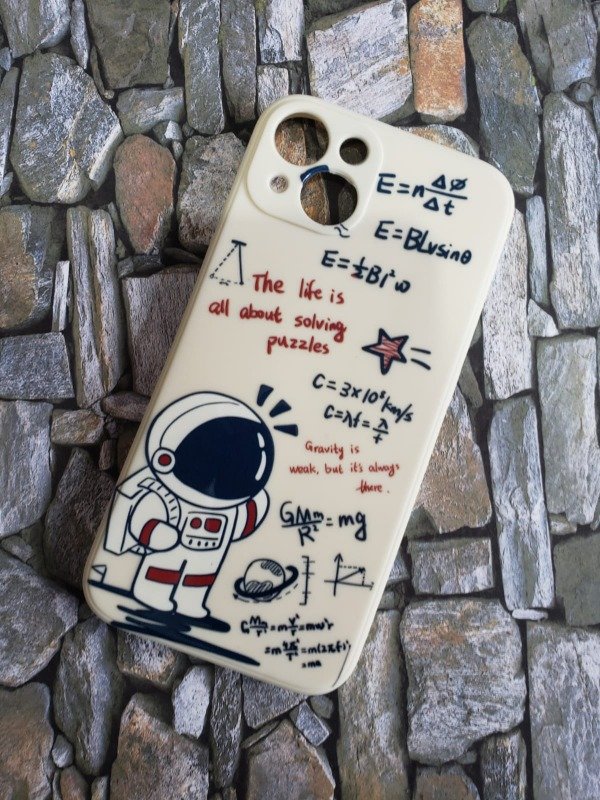 E=nΔø/Δt
E=BLvsinθ
E=½Bl²ω
The life is
all about solving
puzzles
C=3×10⁸km/s
C=λf=λ/T
Gravity is
weak, but it's always
there.
GMm/R²=mg
GMm/r²=mv²/r=mω²r